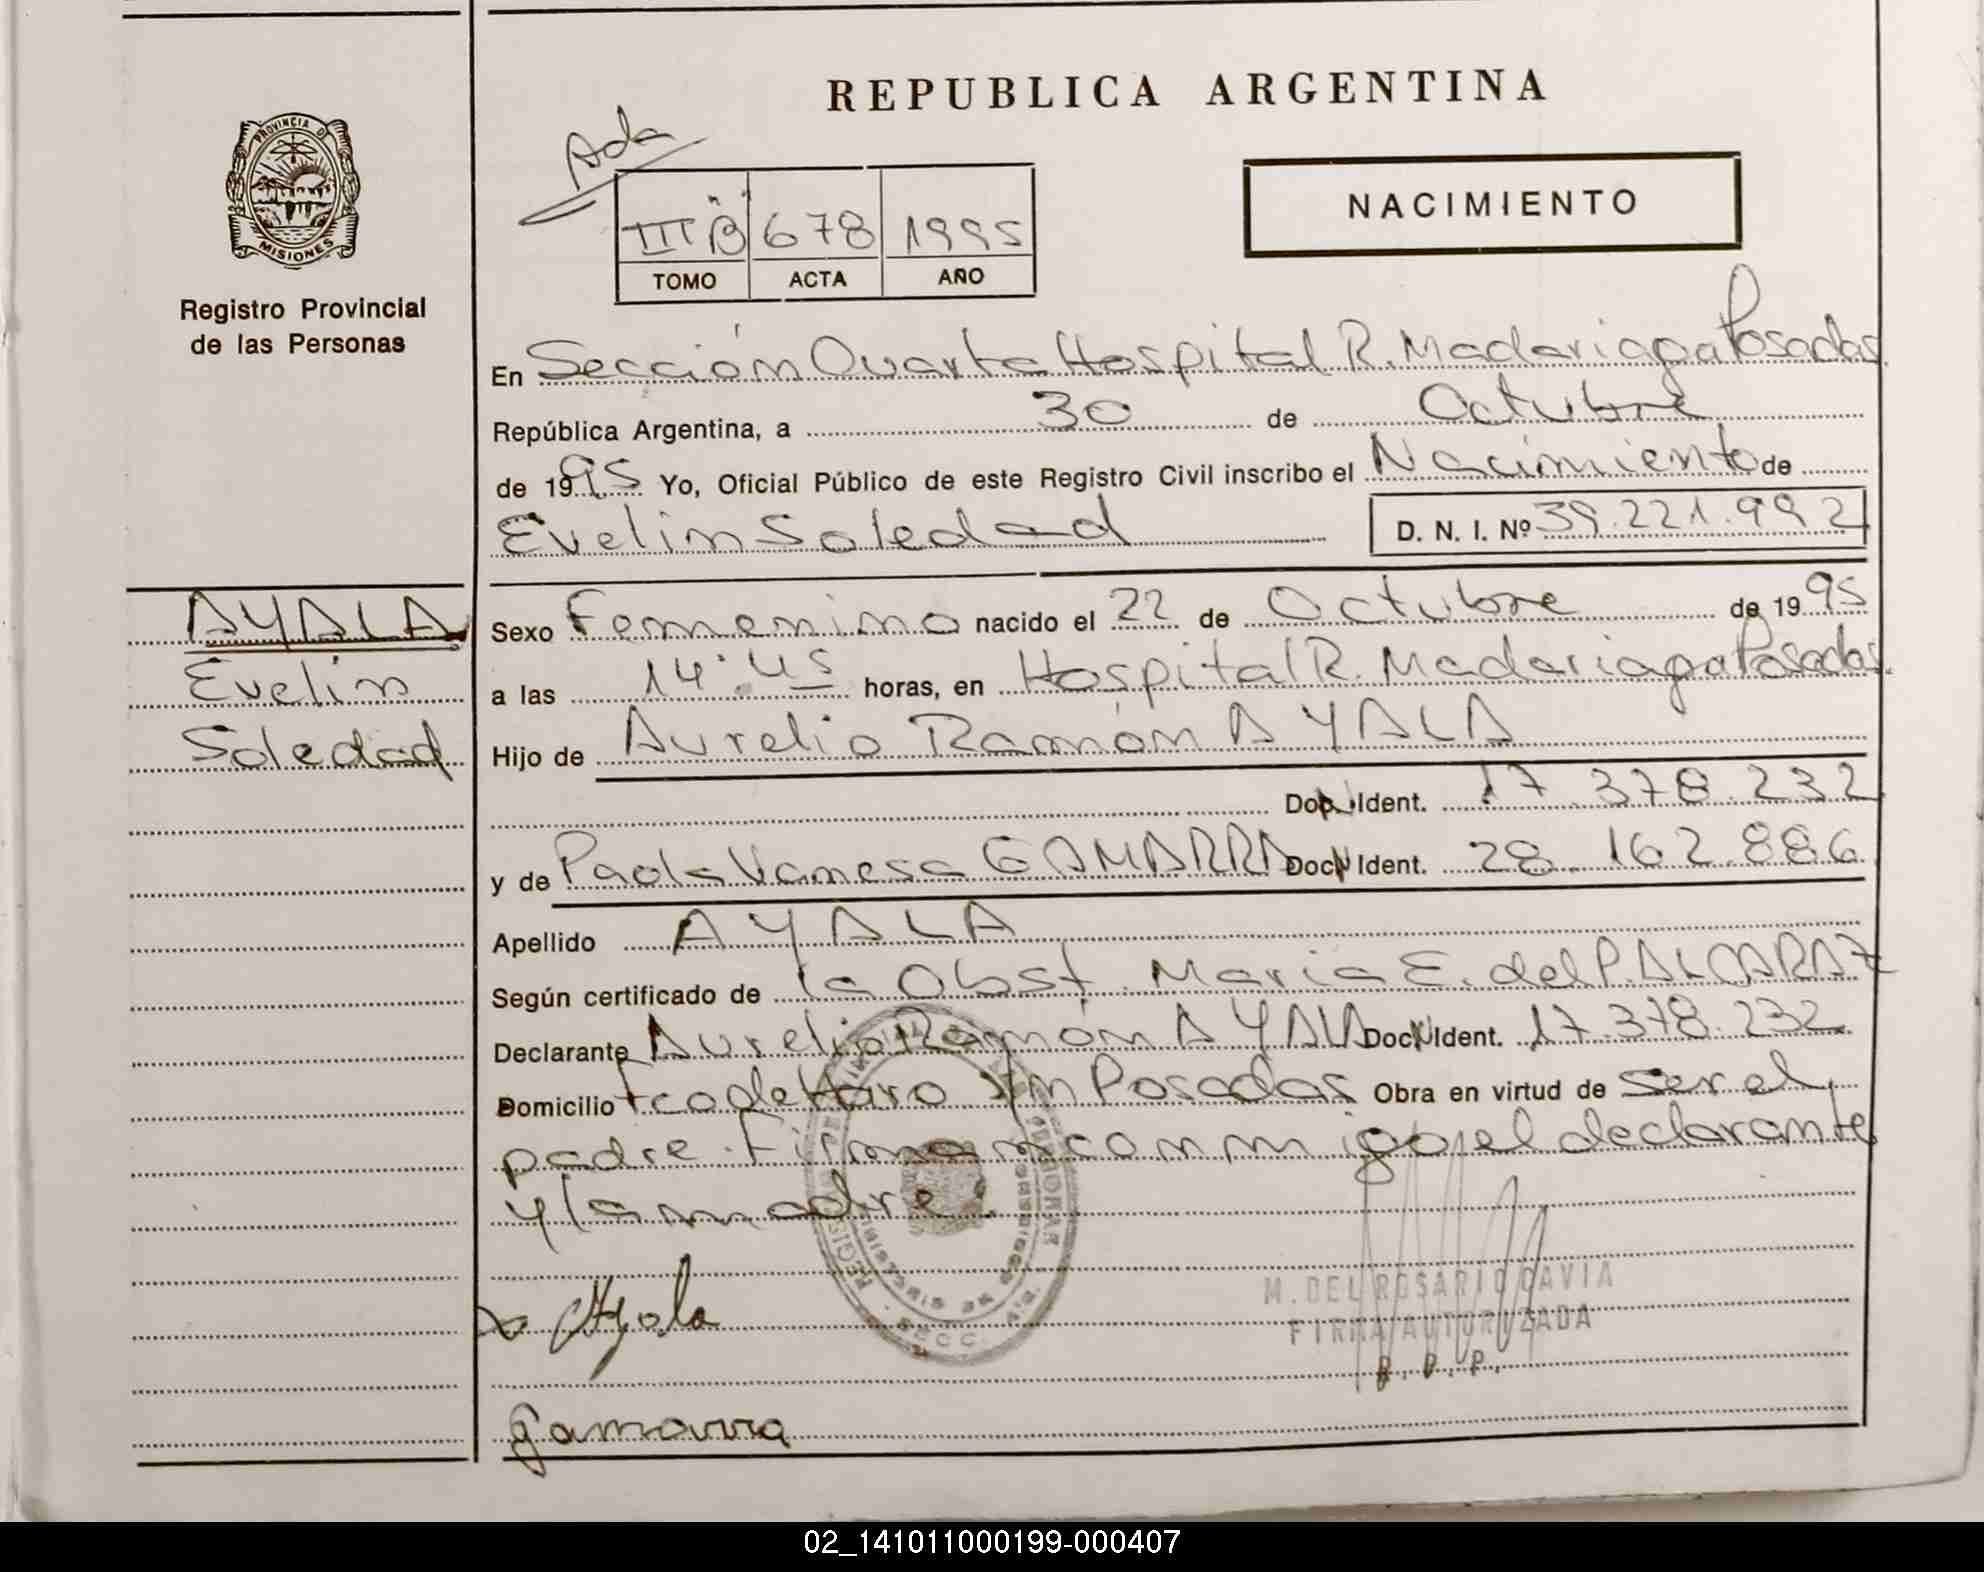 REPUBLICA ARGENTINA
PROVINCIA DE
MISIONES
Registro Provincial
de las Personas
Ada
III "B" 678 1995
TOMO ACTA AÑO
NACIMIENTO
En Sección Quarta Hospital R. Madariaga Posadas
República Argentina, a 30 de Octubre
de 1995 Yo, Oficial Público de este Registro Civil inscribo el Nacimiento de
Evelin Soledad D. N. I. Nº 39.221.992
AYALA
Evelin
Soledad
Sexo Femenino nacido el 22 de Octubre de 1995
a las 14:45 horas, en Hospital R. Madariaga Posadas.
Hijo de Aurelio Ramón AYALA
Doc. Ident. 17.378.232
y de Paola Vanesa GAMARRA Doc. Ident. 28.162.886
Apellido AYALA
Según certificado de la Obst. Maria E. del P. ALCARAZ
Declarante Aurelio Ramón AYALA Doc. Ident. 17.378.232
Domicilio Fco de Haro S/n Posadas Obra en virtud de ser el
padre. Firman conmigo el declarante
y la madre.
Ayala
M. DEL ROSARIO GAVIA
FIRMA AUTORIZADA
R. P. P.
Gamarra
02_141011000199-000407